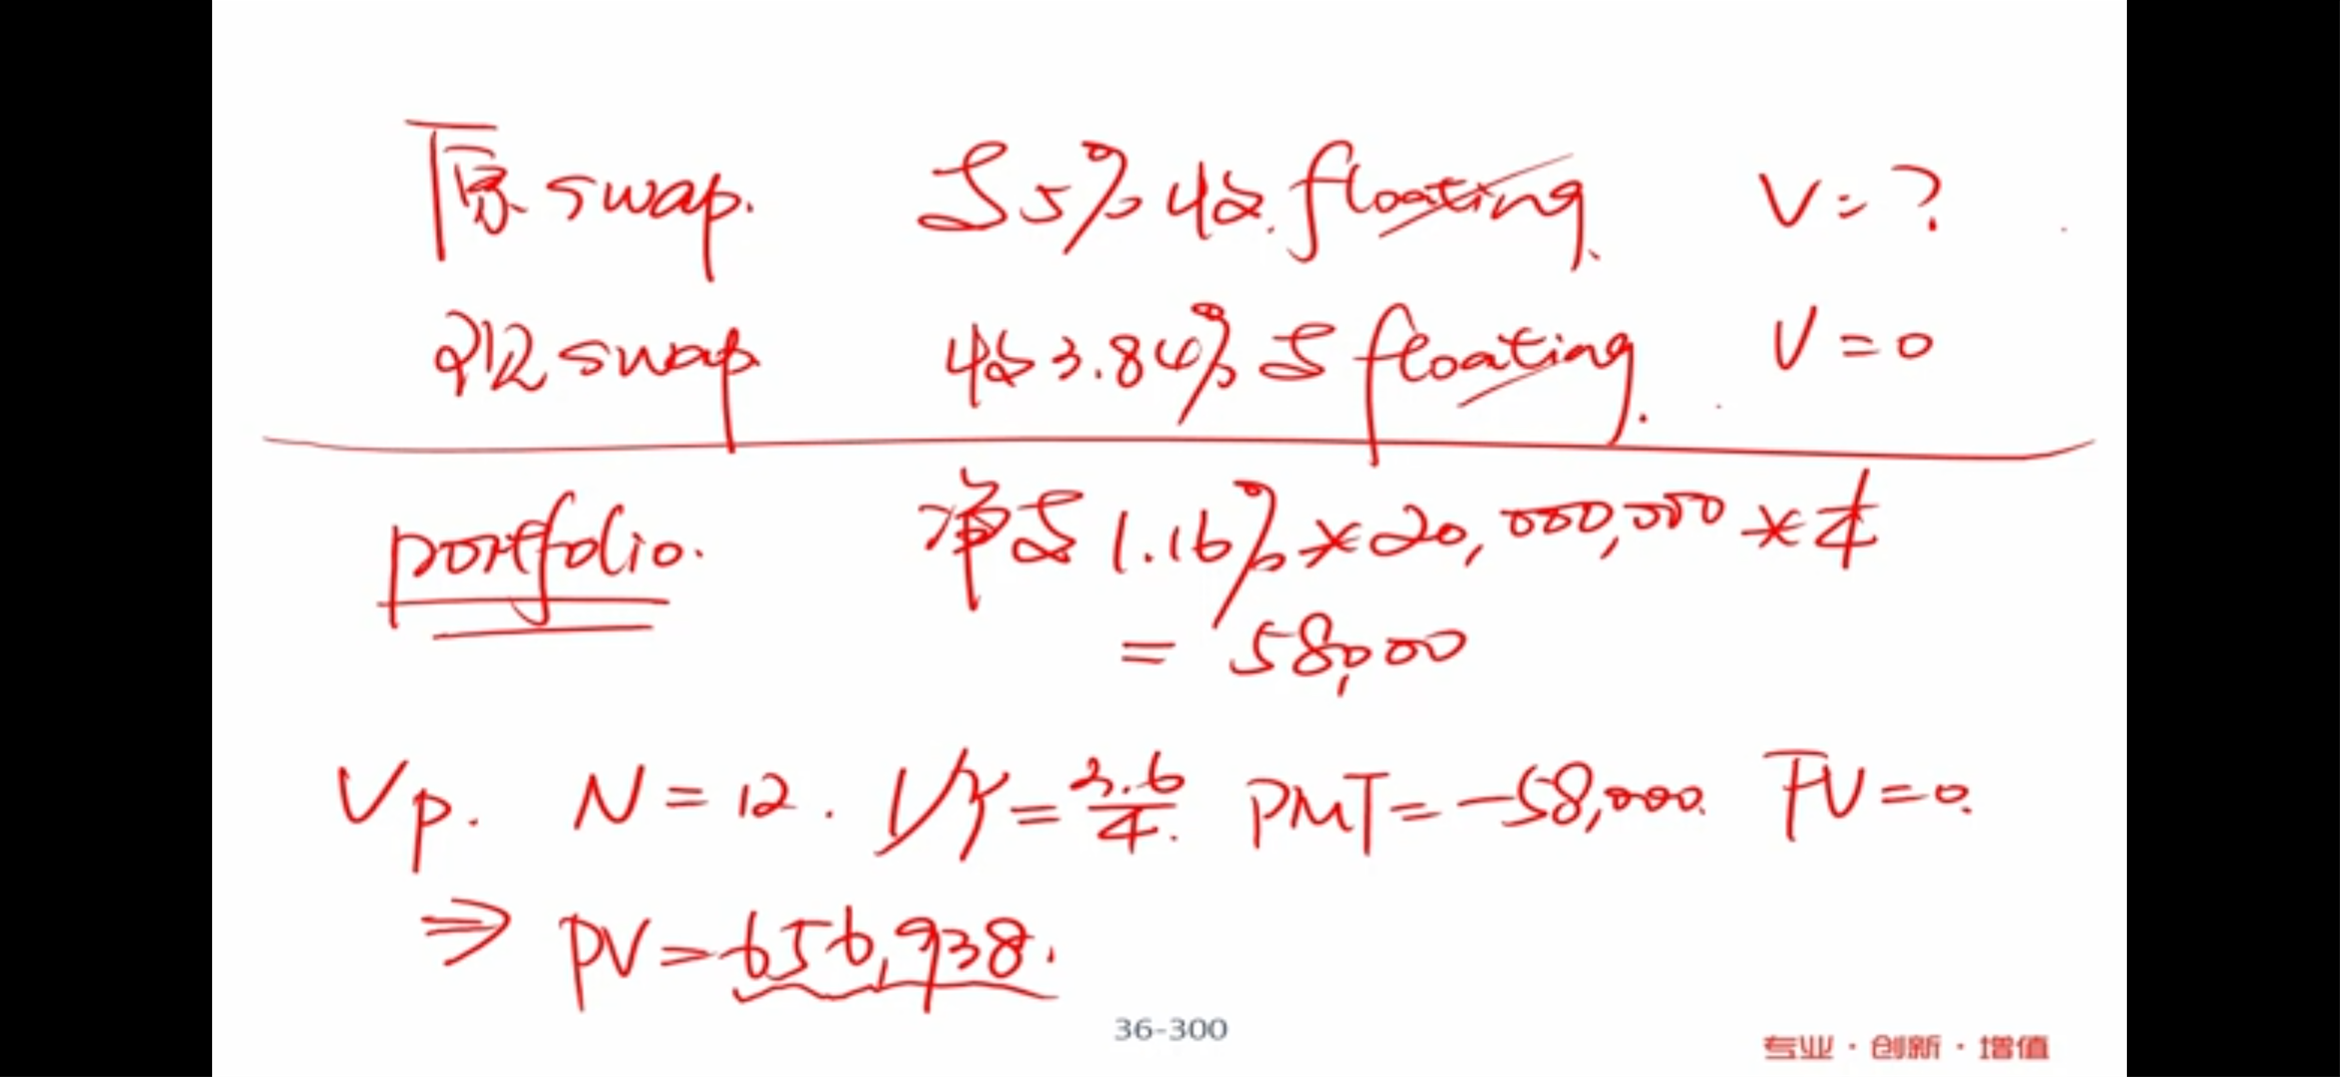 原swap. 支5% 收 floating. V=?
现swap 收3.84% 支 floating. V=0
portfolio. 净支 1.16% * 20,000,000 * 1/4
= 58,000
Vp. N=12. I/Y=3.6/4. PMT=-58,000. FV=0.
⇒ PV=656,938.
36-300
专业·创新·增值